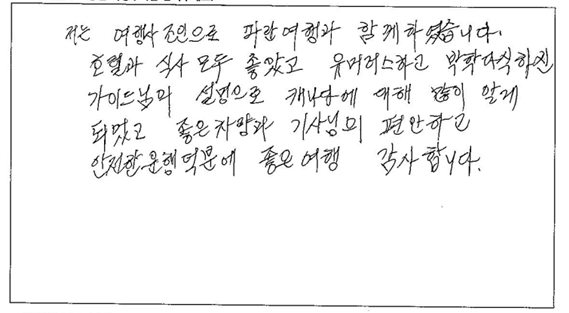 저는 여행사 조인으로 파란여행과 함께하였습니다.
호텔과 식사 모두 좋았고 유머러스하고 박학다식하신
가이드님의 설명으로 캐나다에 대해 많이 알게
되었고 좋은차량과 기사님의 편안하고
안전한 운행덕분에 좋은여행 감사합니다.